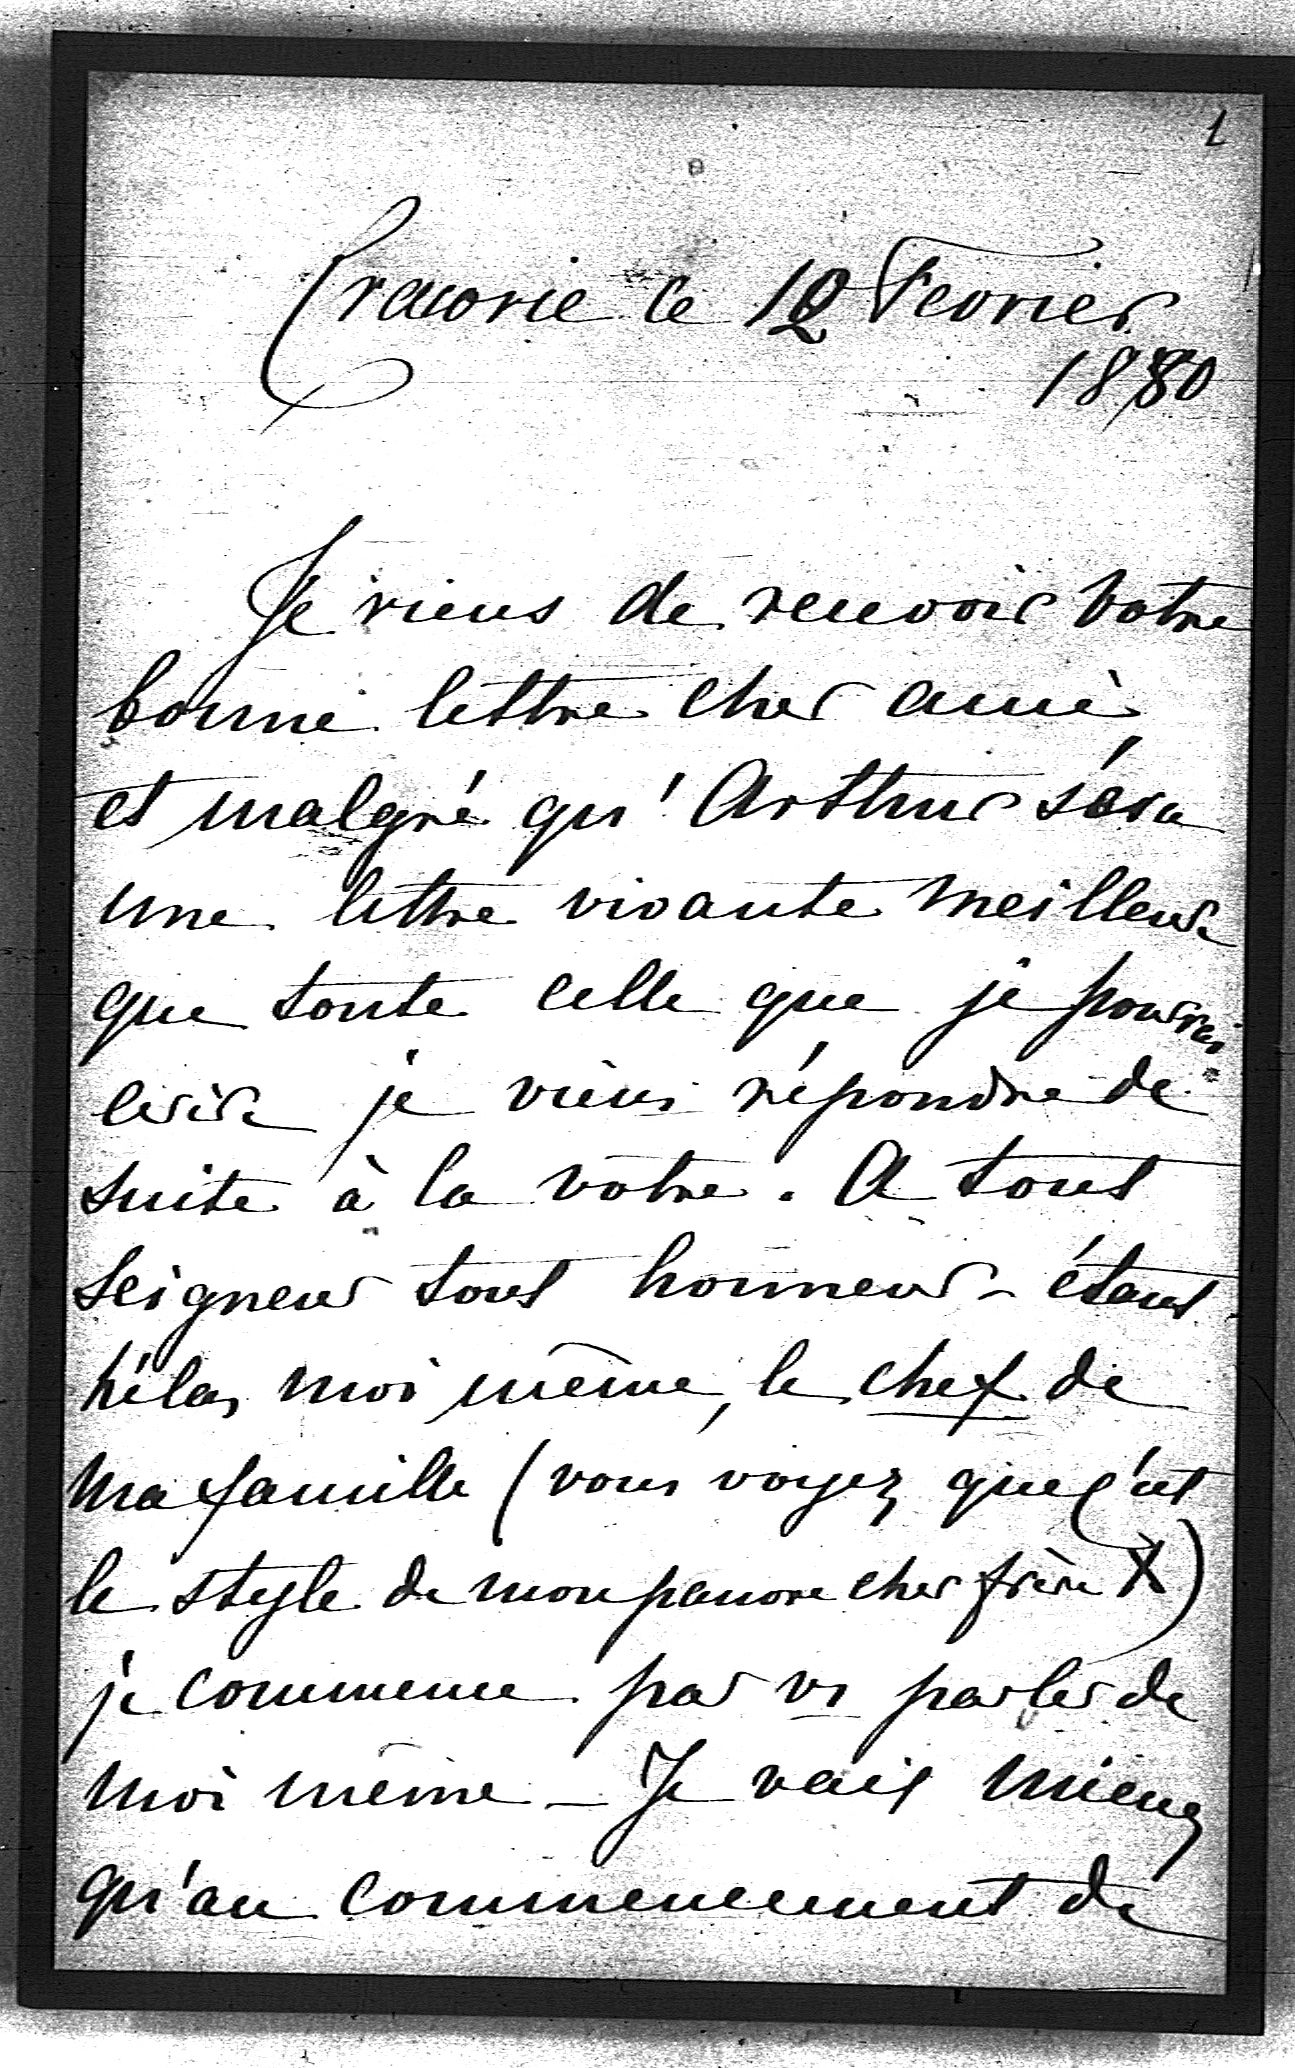 1
Cracovie le 12 Fevrier
1880
Je viens de recevoir votre
bonne lettre cher ami
et malgré qu'Arthur sera
une lettre vivante meilleure
que toute celle que je pourrai
ecrire je viens répondre de
suite à la votre. A tout
seigneur tout honneur - étant
hélas moi même, le chef de
ma famille (vous voyez que c'est
le style de mon pauvre cher frère X)
je commence par vs parler de
moi même - Je vais mieux
qu'au commencement de